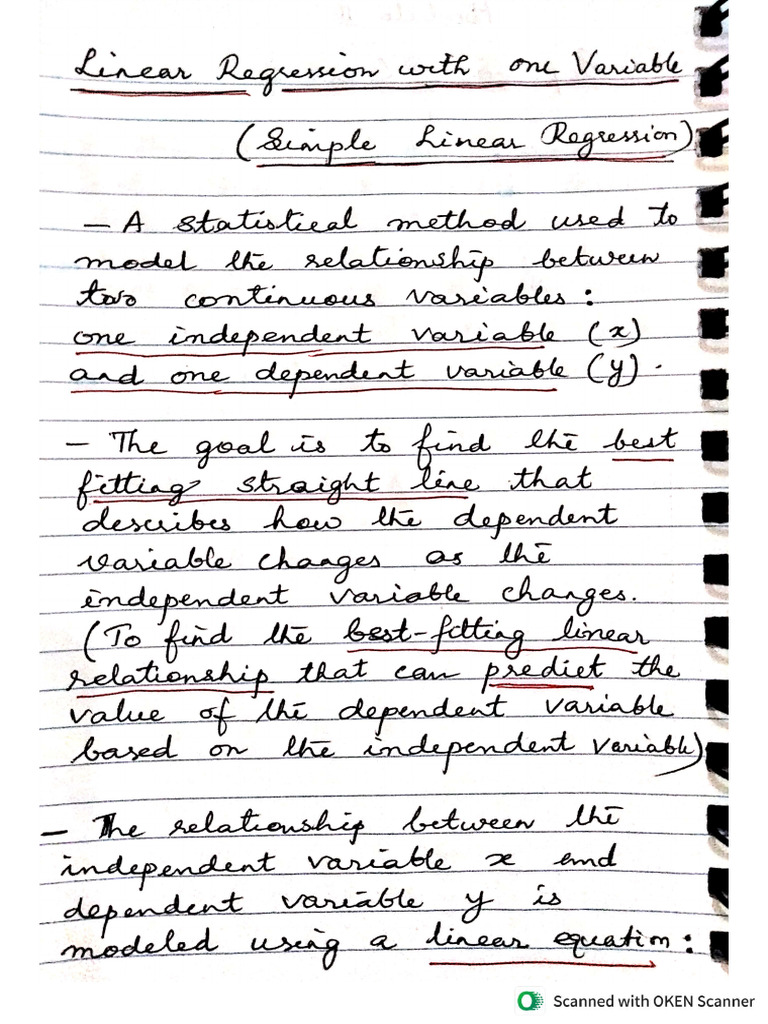 Linear Regression with one Variable
(Simple Linear Regression)
- A statistical method used to
model the relationship between
two continuous variables:
one independent variable (x)
and one dependent variable (y).
- The goal is to find the best
fitting straight line that
describes how the dependent
variable changes as the
independent variable changes.
(To find the best-fitting linear
relationship that can predict the
value of the dependent variable
based on the independent variable)
- The relationship between the
independent variable x and
dependent variable y is
modeled using a linear equation:
Scanned with OKEN Scanner